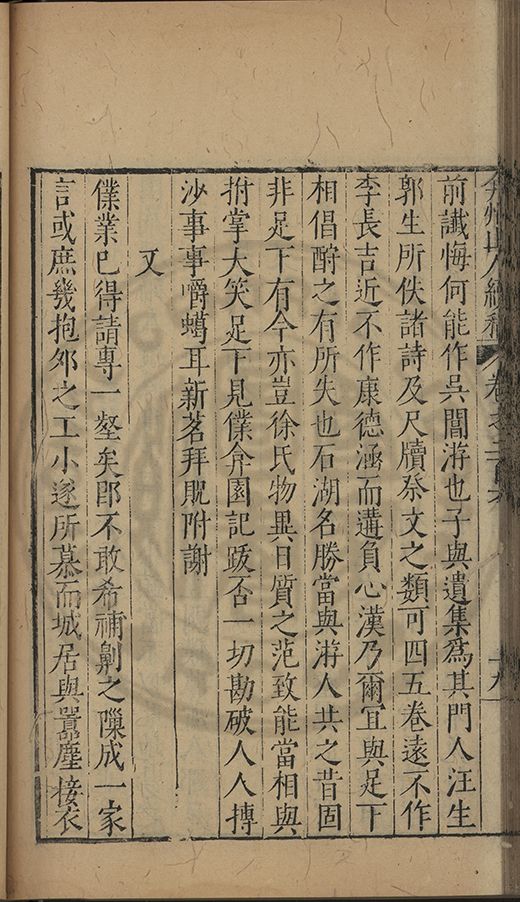 弇州山人續稿 卷之二百六 十九
前讖悔何能作吳閶游也子與遺集爲其門人汪生
郭生所佚諸詩及尺牘祭文之類可四五卷遠不作
李長吉近不作康德涵而遘負心漢乃爾宜與足下
相倡酧之有所失也石湖名勝當與游人共之昔固
非足下有今亦豈徐氏物異日質之范致能當相與
拊掌大笑足下見僕弇園記跋否一切勘破人人摶
沙事事嚼蠟耳新茗拜貺附謝
又
僕業已得請專一壑矣卽不敢希補劓之隟成一家
言或庶幾抱夘之工小遂所慕而城居與囂塵接衣